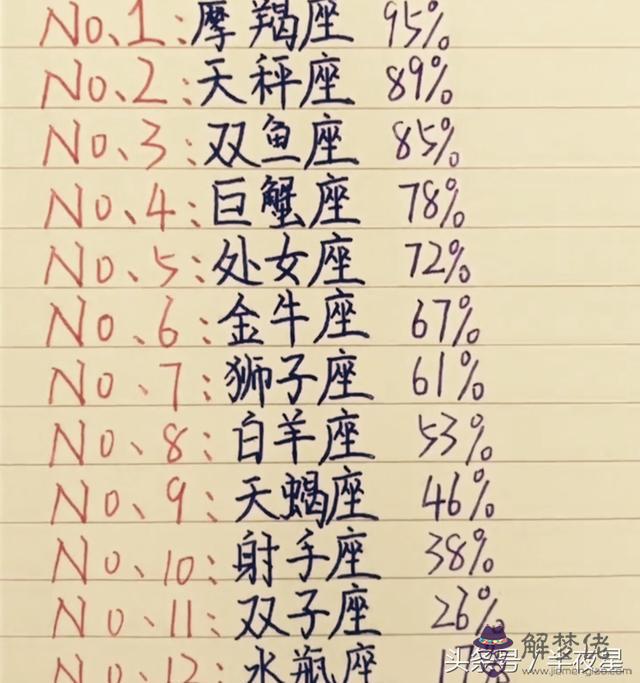 No.1:摩羯座 95%
No、2:天秤座 89%
No、3:双鱼座 85%
No、4:巨蟹座 78%
No、5:处女座 72%
No、6:金牛座 67%
No、7:狮子座 61%
No、8:白羊座 53%
No、9:天蝎座 46%
No、10:射手座 38%
No、11:双子座 26%
No、12:水瓶座
头条号/半夜星
解梦佬
www.jiemenglao.com